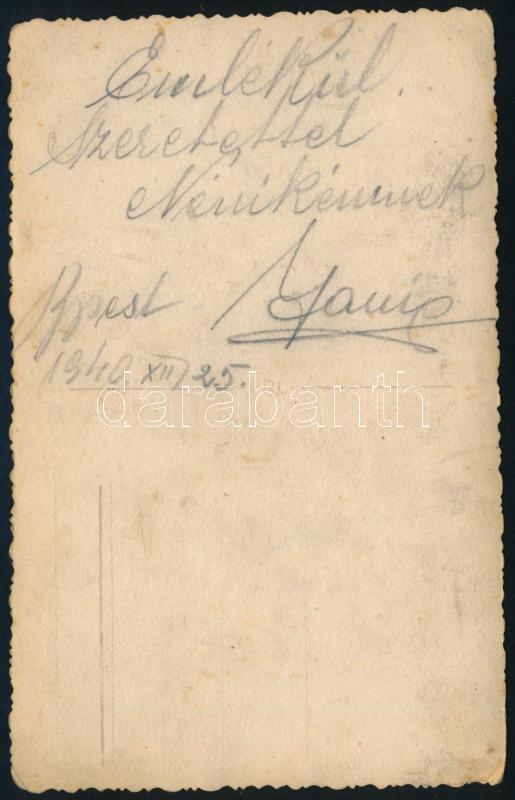 Emlékül.
Szeretettel
Nénikémnek
Bpest
1940 XII/25.
darabanth